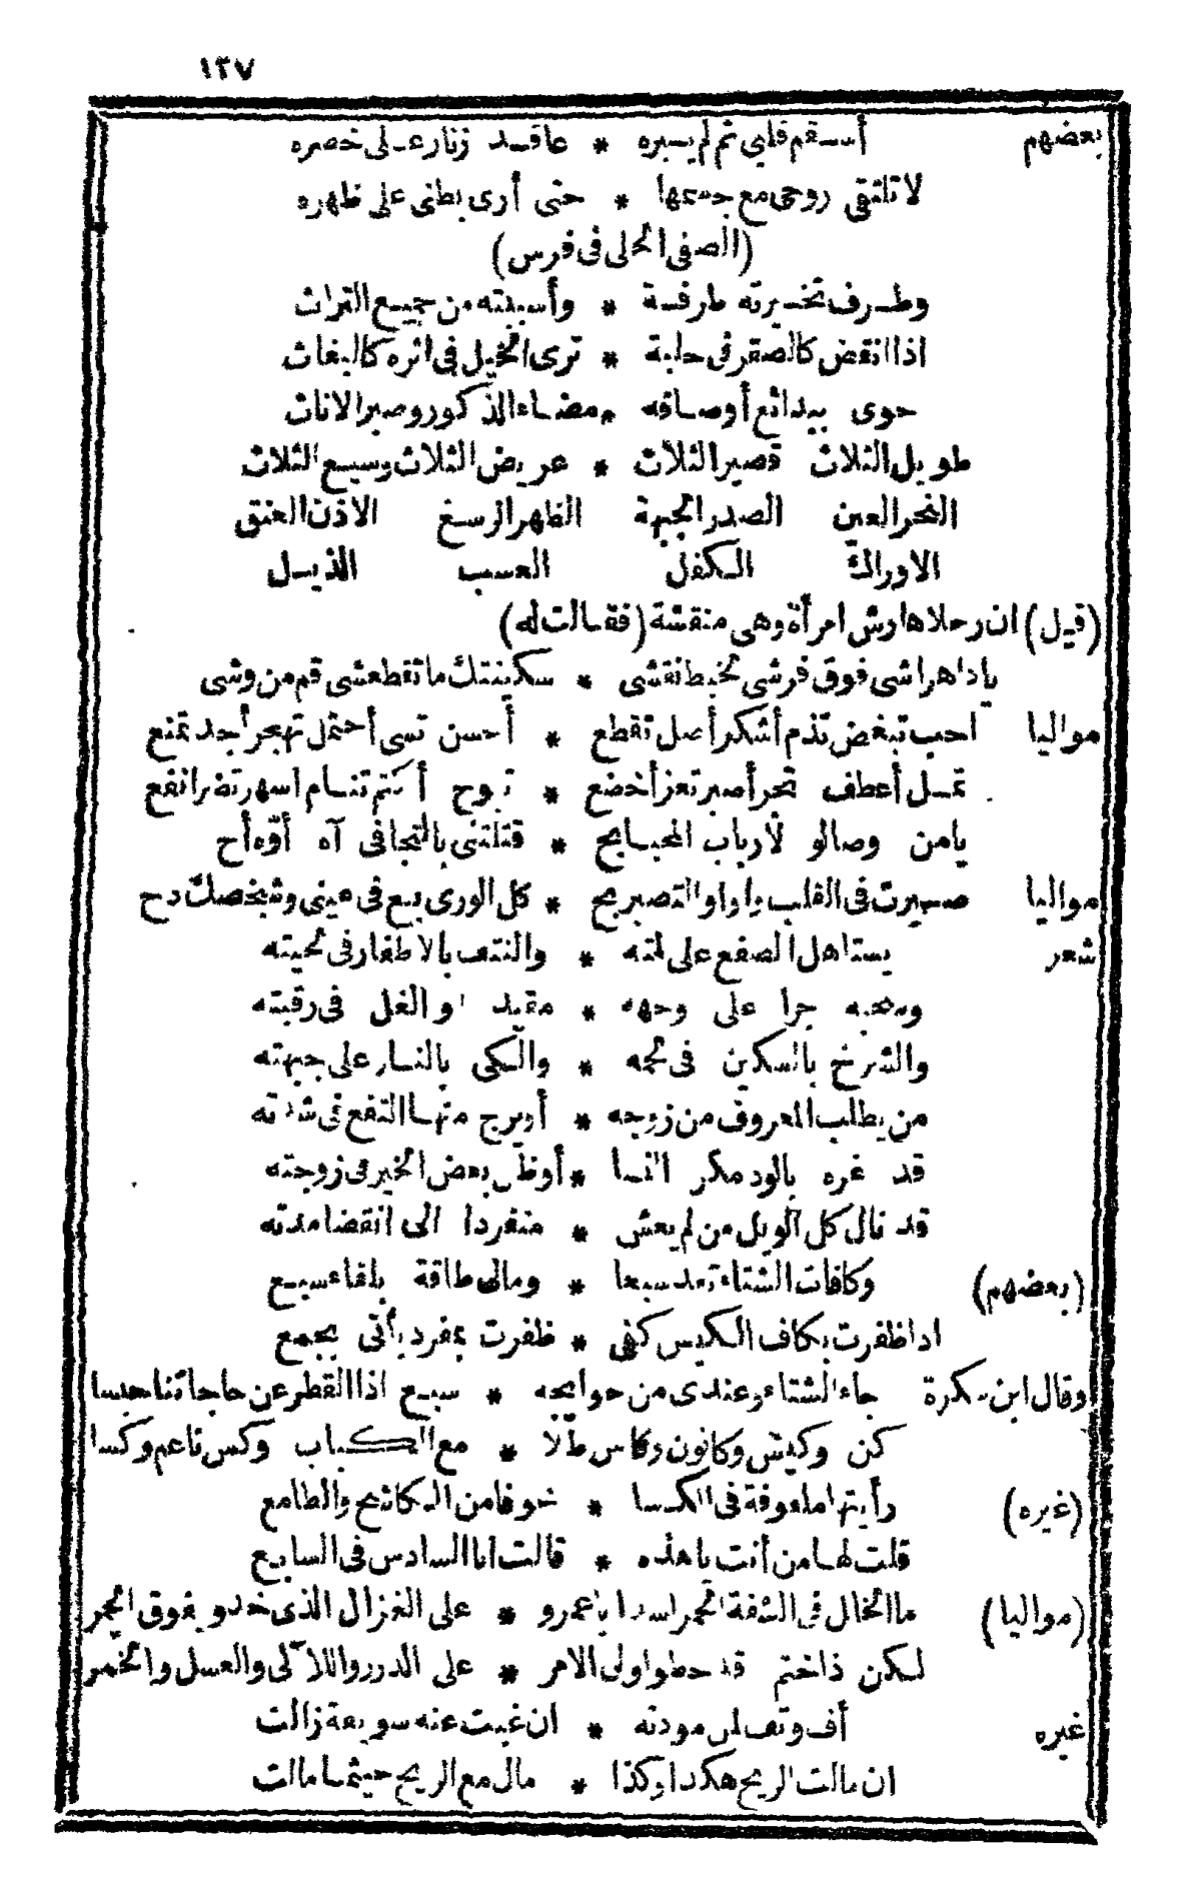 ١٢٧
بعضهم أسقم قلبي ثم لم يسبره * عاقد زنار على خصره
لا تلتقى روحى مع جسمها * حتى أرى بطنى على ظهره
(الصفى الحلى فى فرس)
وطرف تخيرته طرفة * وأسبقته من جميع التراث
اذا انقض كالصقر فى حلبة * ترى الخيل فى اثره كالبغاث
حوى ببدائع أوصافه * مضاء الذكور وصبر الاناث
طويل الثلاث قصير الثلاث * عريض الثلاث وسيع الثلاث
النحر العين الصدر الجبهة الظهر الرسغ الاذن العنق
الاوراك الكفل العسب الذيل
(قيل) ان رجلا هارش امرأة وهى منقشة (فقالت له)
ياذا هراشى فوق فرشى تخبط نقشى * سكينتك ما تقطعشى قم من وشى
مواليا احب تبغض تذم أشكر أصل تقطع * أحسن تسى أحتمل تهجر أجد تمنع
تمل أعطف تجر أصبر تعز أخضع * تبوح أكتم تنام اسهر تضر انفع
يا من وصالو لأرباب المحبايح * قتلتنى بالتجافى آه أوّه أح
مواليا صيرت فى القلب واوا والتصبر بح * كل الورى بيع فى عينى وشخصك دح
شعر يستاهل الصفع على لمته * والنتف بالاظفار فى لحيته
وسحبه جرا على وجهه * مقيد او الغل فى رقبته
والشرخ بالسكين فى لحمه * والكى بالنار على جبهته
من يطلب المعروف من زوجه * أو يرج منها النفع فى شدته
قد غره بالود مكر النسا * أوظن بعض الخير فى زوجته
قد نال كل الويل من لم يعش * منفردا الى انقضا مدته
(بعضهم) وكافات الشتاء تعد سبعا * ومالى طاقة بلقاء سبع
اذا ظفرت بكاف الكيس كفى * ظفرت بمفرد يأتى بجمع
وقال ابن سكرة جاء الشتاء وعندى من حوايجه * سبع اذا القطر عن حاجاتنا حبسا
كن وكيس وكانون وكاس طلا * مع الكباب وكس ناعم وكسا
(غيره) رأيتها ملفوفة فى الكسا * خوفا من الكاشح والطامع
قلت لها من أنت يا هذه * قالت انا السادس فى السابع
(مواليا) ما الخال فى الشفة الحمرا سدا يا عمرو * على الغزال الذى خدو يفوق الجمر
لكن ذا ختم قد حطوا ولى الامر * على الدرر واللآلى والعسل والخمر
غيره أف وتف لمن مودته * ان غبت عنه سويعة زالت
ان مالت الريح هكذا وكذا * مال مع الريح حيثما مالت